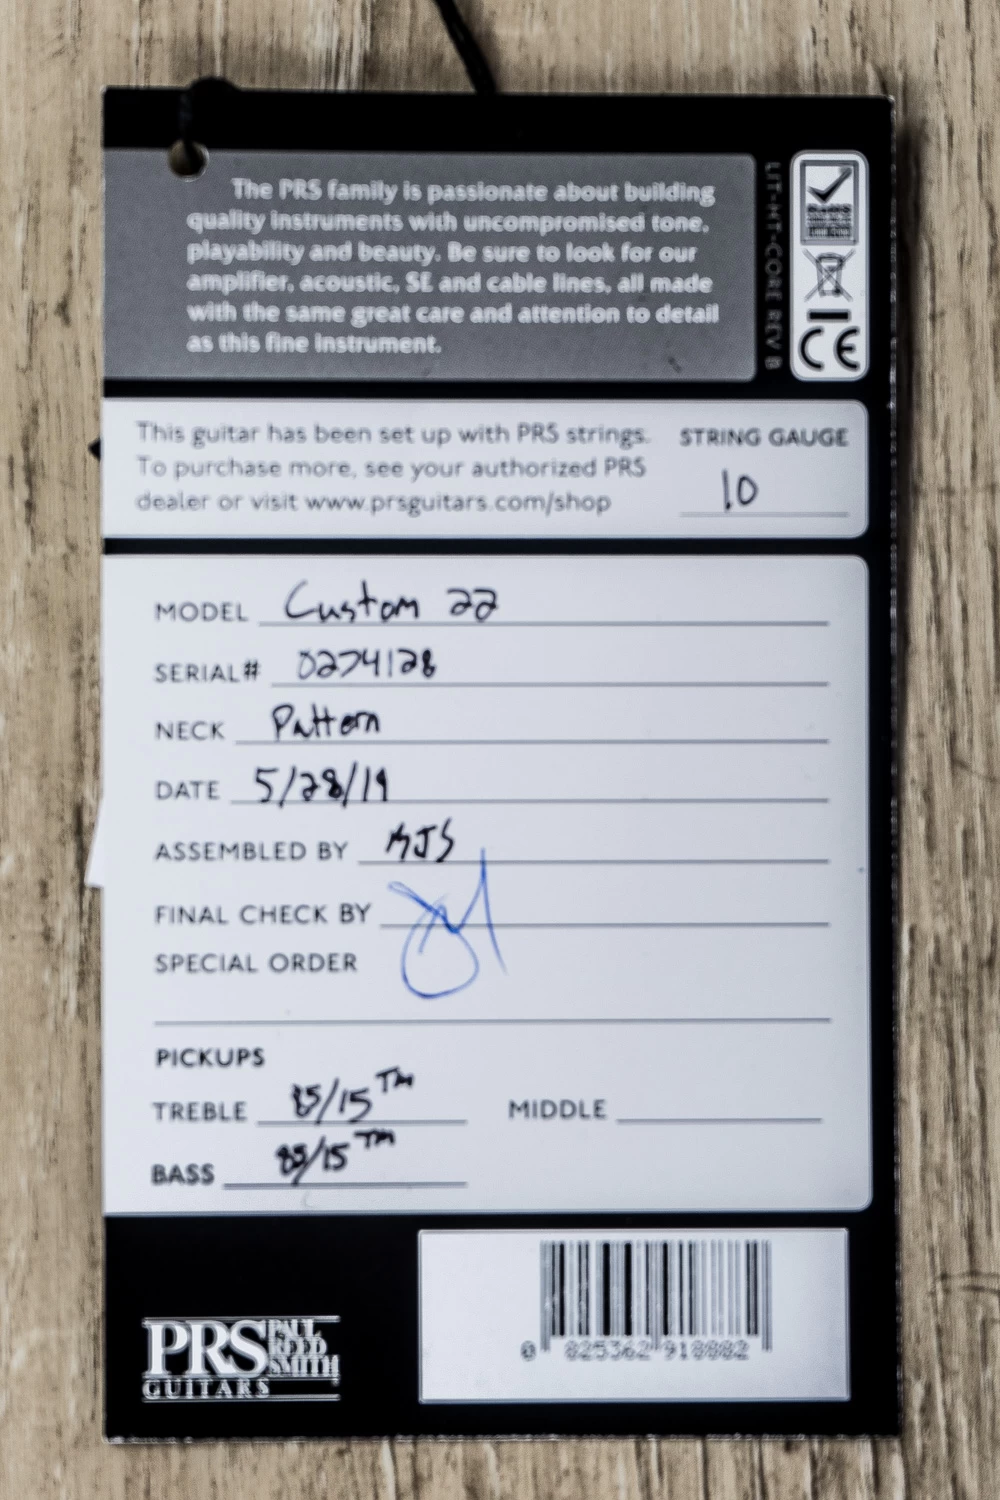 The PRS family is passionate about building
quality instruments with uncompromised tone,
playability and beauty. Be sure to look for our
amplifier, acoustic, SE and cable lines, all made
with the same great care and attention to detail
as this fine instrument.
LIT-HT-CORE REV B
CE
This guitar has been set up with PRS strings.
To purchase more, see your authorized PRS
dealer or visit www.prsguitars.com/shop
STRING GAUGE
10
MODEL Custom 22
SERIAL# 0274128
NECK Pattern
DATE 5/28/19
ASSEMBLED BY MJS
FINAL CHECK BY
SPECIAL ORDER
PICKUPS
TREBLE 85/15™ MIDDLE
BASS 85/15™
0 825362 918882
PRS PAUL REED SMITH
GUITARS